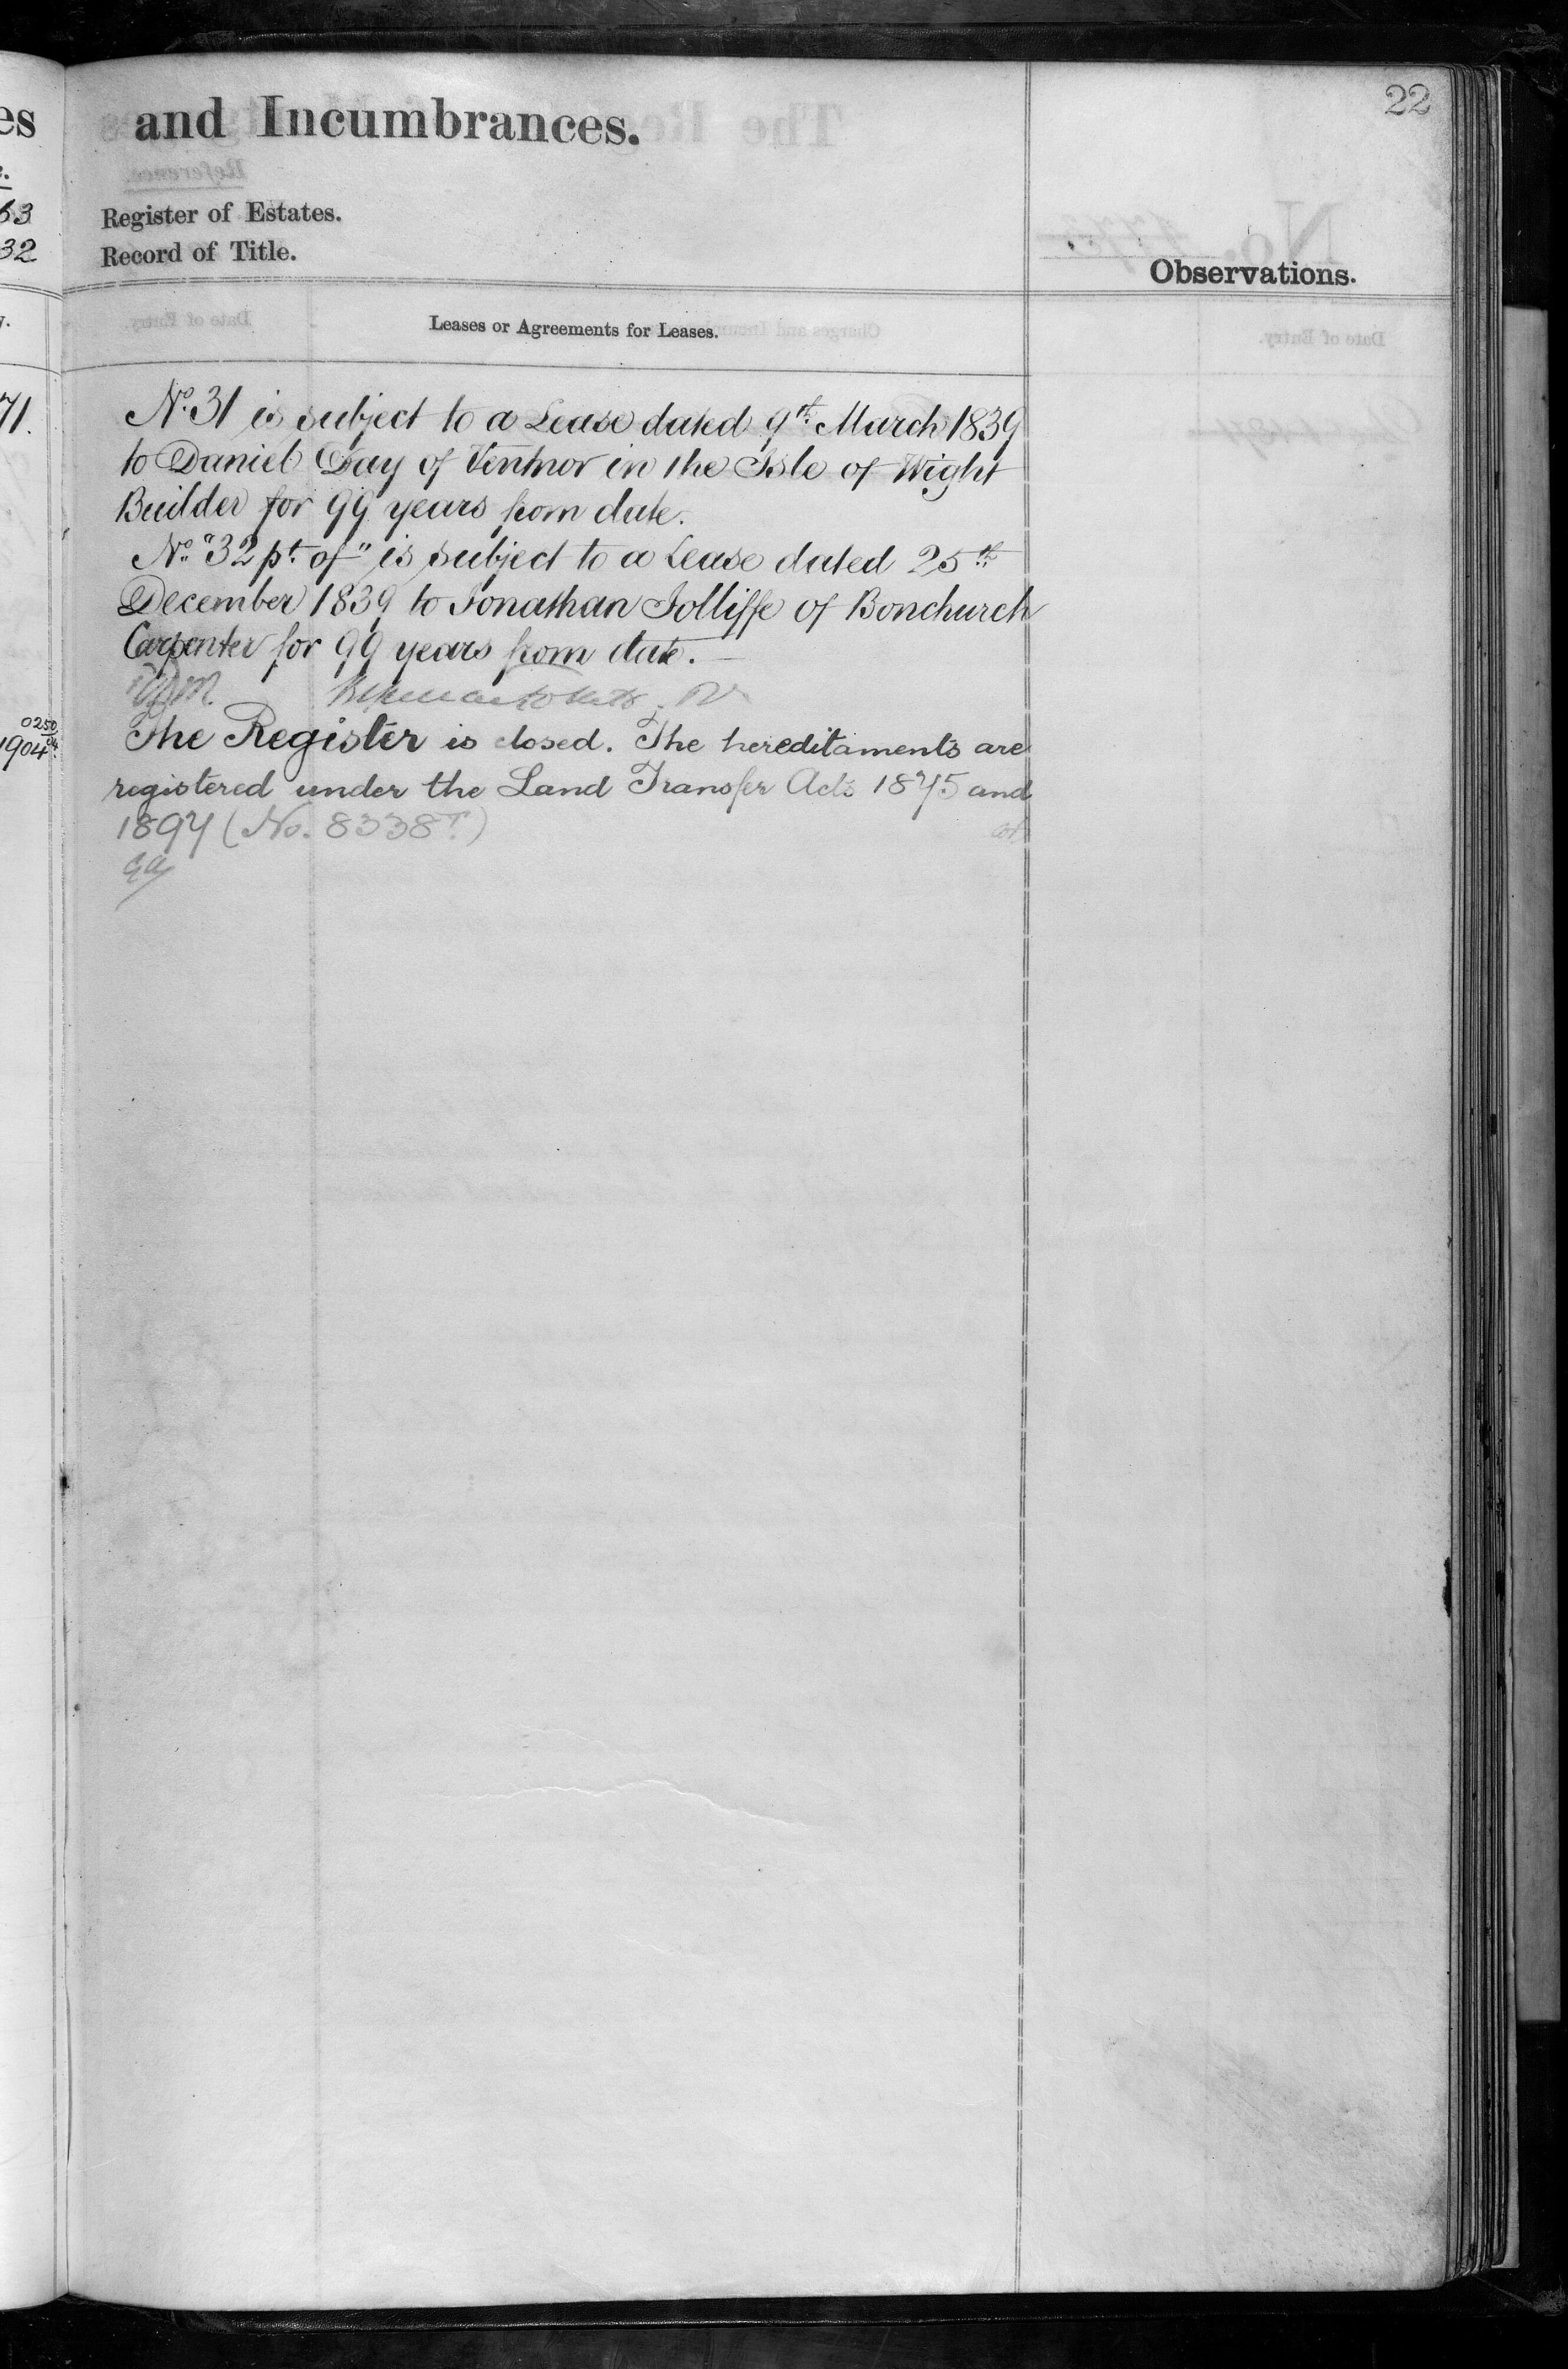 22
and Incumbrances.
Register of Estates.
Record of Title.
Observations.
Leases or Agreements for Leases.
No. 31 is subject to a Lease dated 9th March 1839
to Daniel Day of Ventnor in the Isle of Wight
Builder for 99 years from date.
No. "32 pt. of" is subject to a Lease dated 25th
December 1839 to Jonathan Jolliffe of Bonchurch
Carpenter for 99 years from date.
The Register is closed. The hereditaments are
registered under the Land Transfer Acts 1875 and
1897 (No. 8338
es
63
32
71.
0250
1904